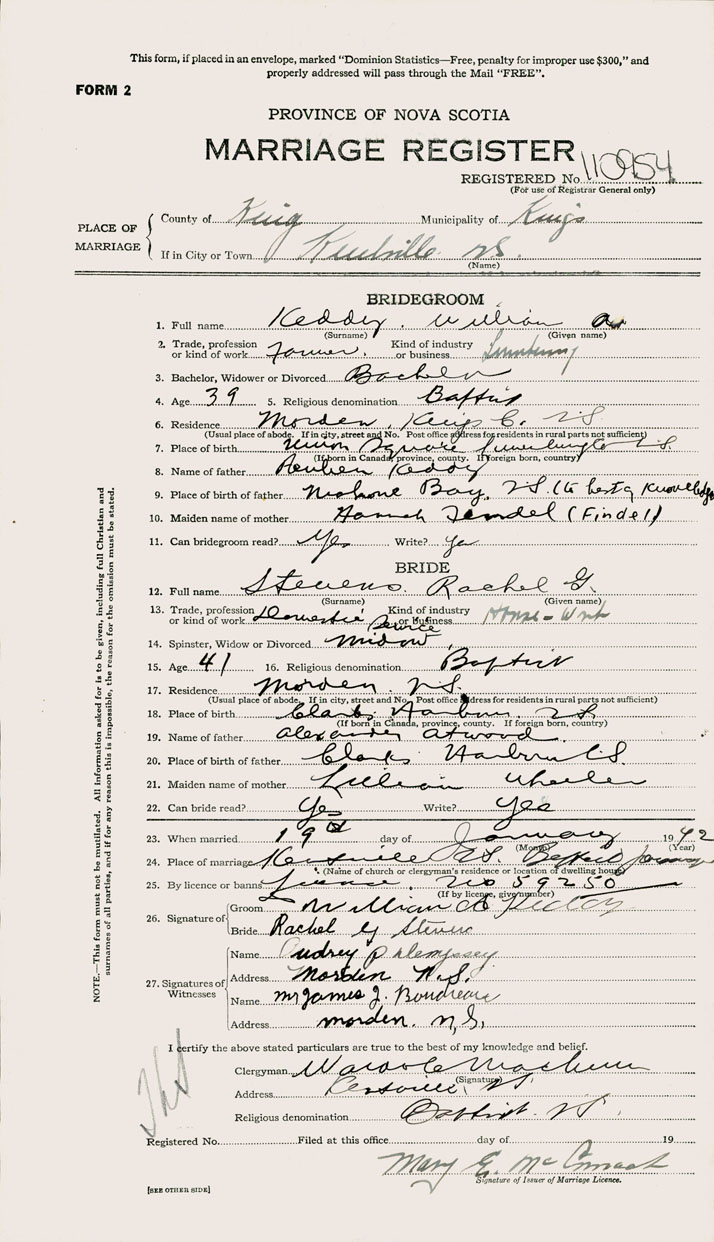 This form, if placed in an envelope, marked "Dominion Statistics—Free, penalty for improper use $300," and
properly addressed will pass through the Mail "FREE".
FORM 2
PROVINCE OF NOVA SCOTIA
MARRIAGE REGISTER
REGISTERED No. 110954
(For use of Registrar General only)
PLACE OF MARRIAGE
County of King Municipality of Kings
If in City or Town Kentville N.S.
(Name)
BRIDEGROOM
1. Full name Keddy, William
(Surname) (Given name)
2. Trade, profession or kind of work Farmer. Kind of industry or business
3. Bachelor, Widower or Divorced Bachelor
4. Age 39 5. Religious denomination Baptist
6. Residence Morden, Kings C. NS
(Usual place of abode. If in city, street and No. Post office address for residents in rural parts not sufficient)
7. Place of birth Union Square Lunenburg N.S.
(If born in Canada, province, county. If foreign born, country)
8. Name of father Reuben Keddy
9. Place of birth of father Mahone Bay, N.S. (to best of knowledge
10. Maiden name of mother Hannah Zendel (Findel)
11. Can bridegroom read? Yes Write? Yes
BRIDE
12. Full name Stevens, Rachel G.
(Surname) (Given name)
13. Trade, profession or kind of work Domestic Service Kind of industry or business House-Work
14. Spinster, Widow or Divorced Widow
15. Age 41 16. Religious denomination Baptist
17. Residence Morden. N.S.
(Usual place of abode. If in city, street and No. Post office address for residents in rural parts not sufficient)
18. Place of birth Clarks Harbour N.S.
(If born in Canada, province, county. If foreign born, country)
19. Name of father Alexander Atwood
20. Place of birth of father Clarks Harbour N.S.
21. Maiden name of mother Lillian Wheeler
22. Can bride read? Yes Write? Yes
23. When married 19th day of January 1942
(Month) (Year)
24. Place of marriage Kentville N.S. Baptist Parsonage
(Name of church or clergyman's residence or location of dwelling house)
25. By licence or banns License. No 59250
(If by licence, give number)
26. Signature of
Groom William A Keddy
Bride Rachel G Stevens
27. Signatures of Witnesses
Name Audrey P Dempsey
Address Morden N.S.
Name Mr James J. Boudreau
Address morden. N.S.
I certify the above stated particulars are true to the best of my knowledge and belief.
Clergyman
(Signature)
Address Kentville, N.S.
Religious denomination Baptist.
Registered No. Filed at this office day of 19
Mary E. McCormack
Signature of Issuer of Marriage Licence.
[SEE OTHER SIDE]
NOTE.—This form must not be mutilated. All information asked for is to be given, including full Christian and
surnames of all parties, and if for any reason this is impossible, the reason for the omission must be stated.